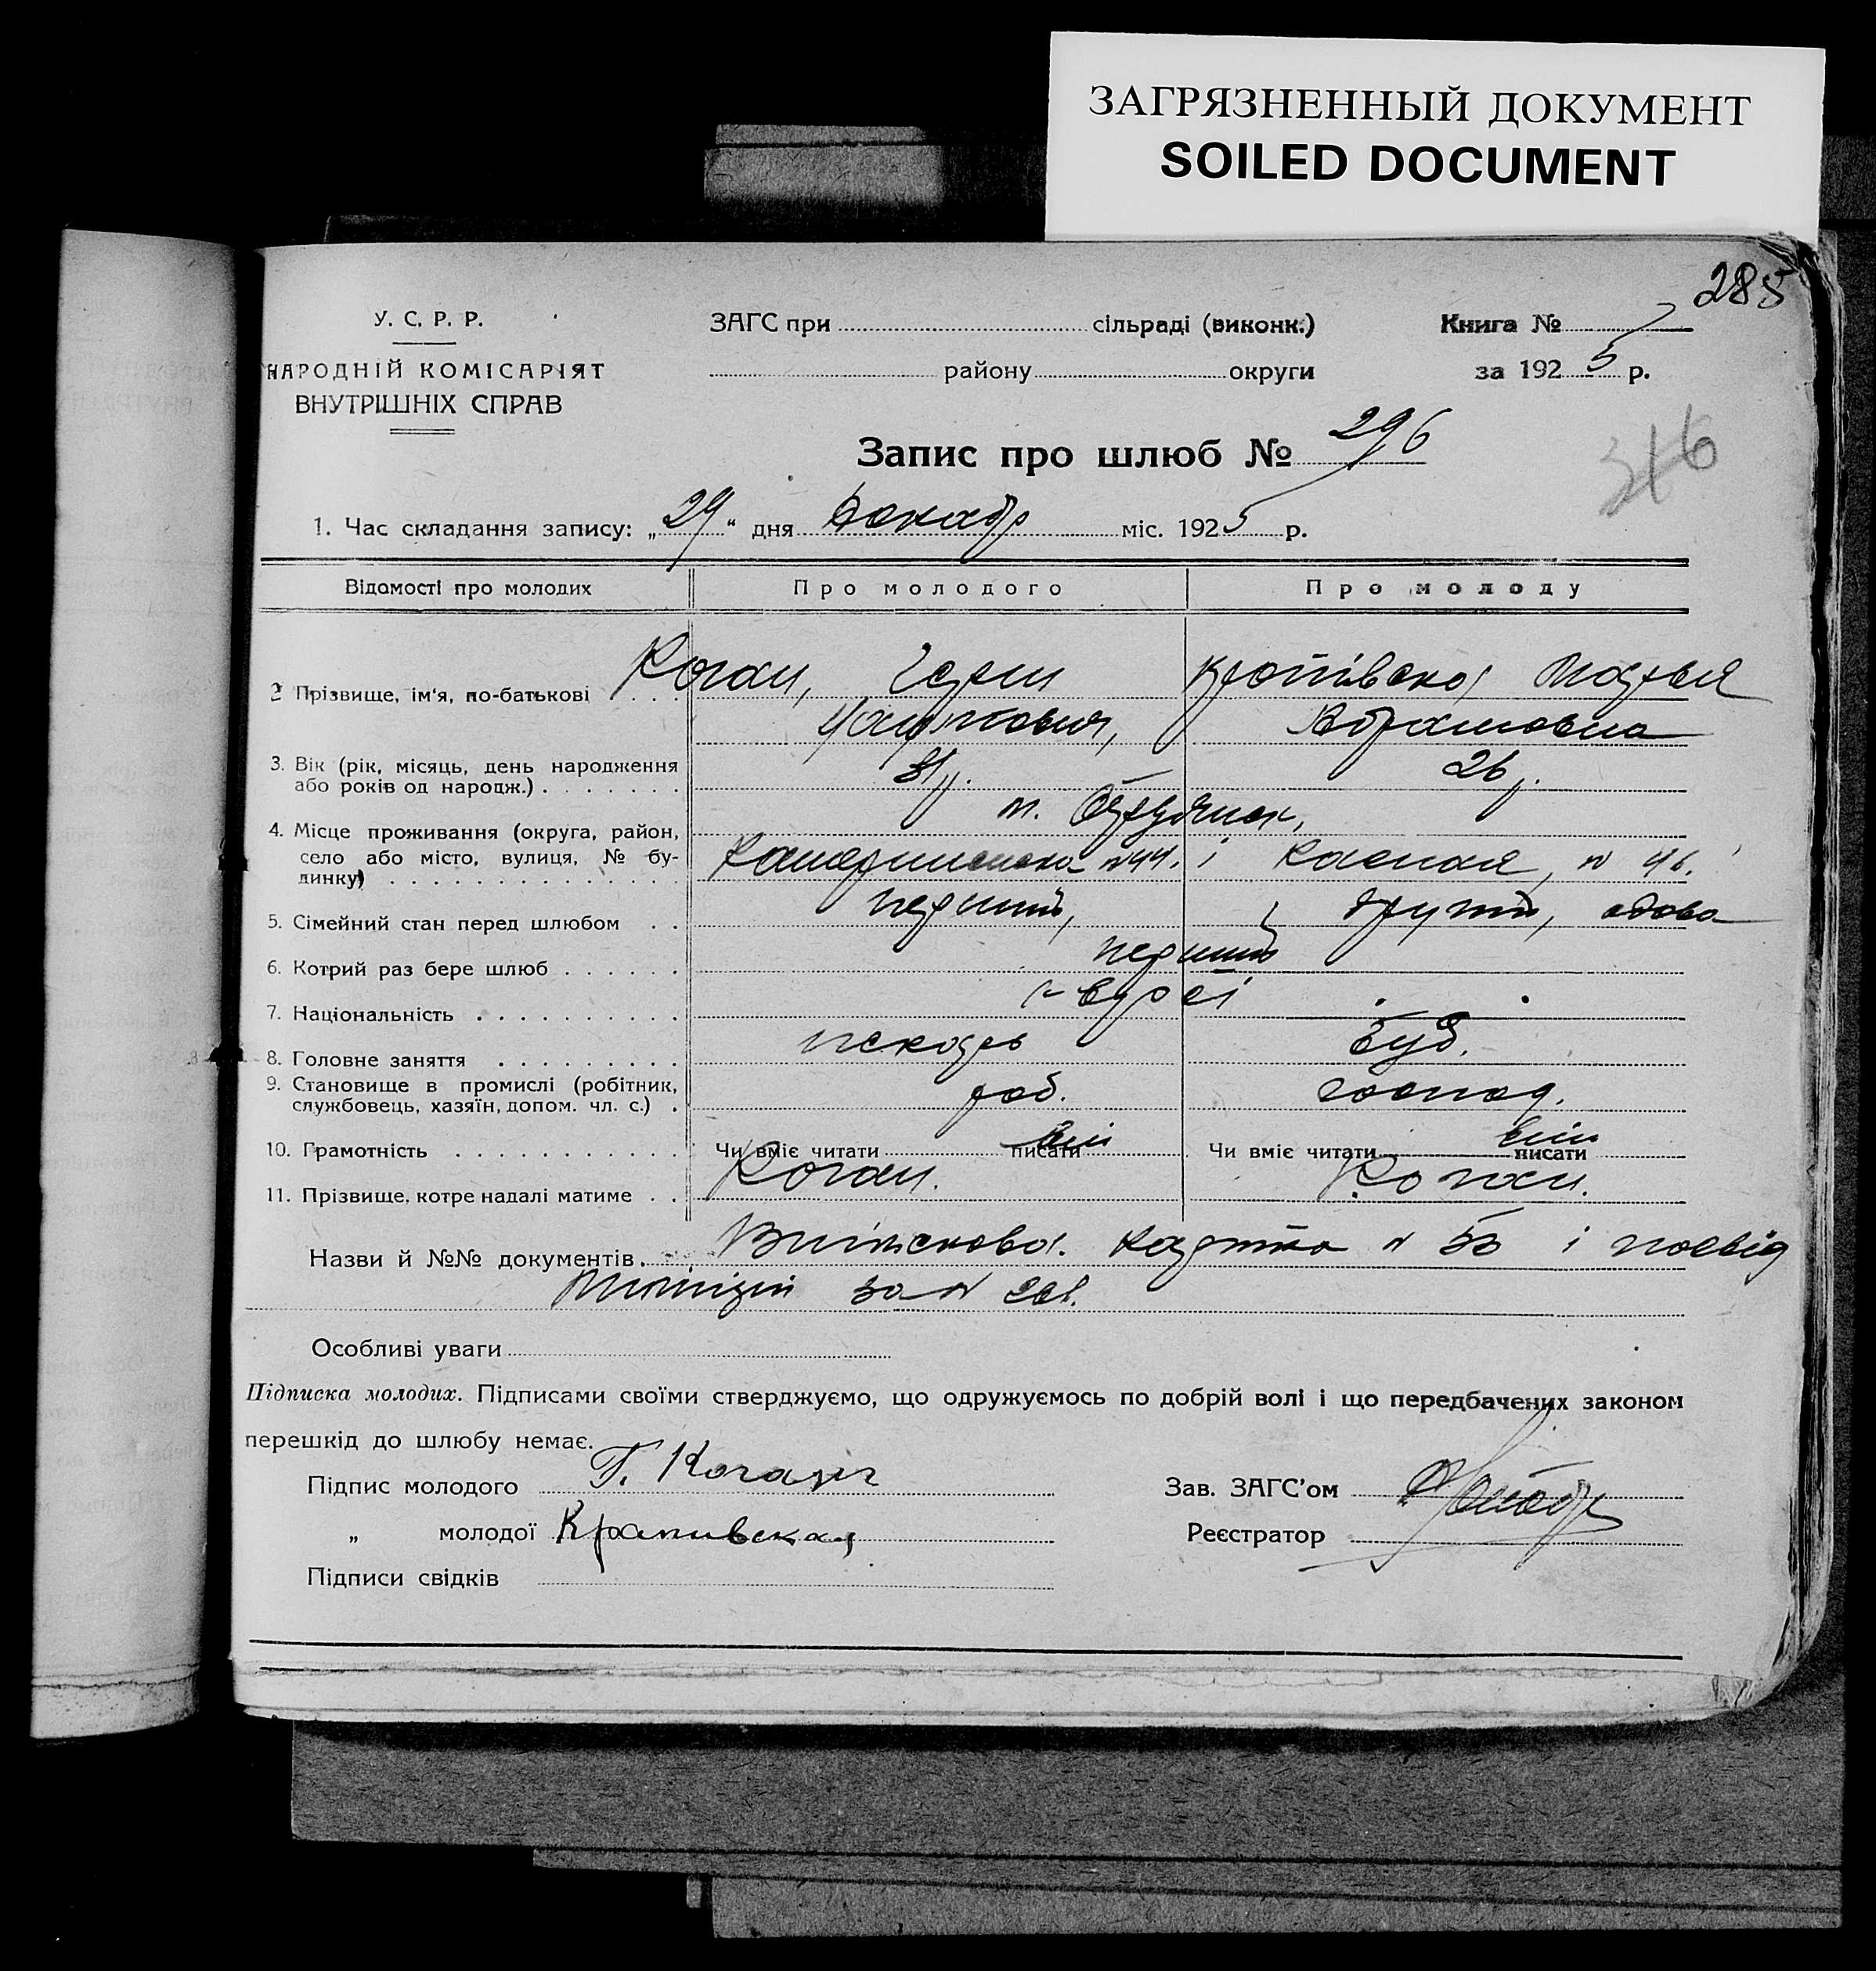 ЗАГРЯЗНЕННЫЙ ДОКУМЕНТ
SOILED DOCUMENT
285
У. С. Р. Р.
НАРОДНІЙ КОМІСАРІЯТ
ВНУТРІШНІХ СПРАВ
ЗАГС при сільраді (виконк.)
району округи
Книга №
за 1925 р.
Запис про шлюб № 296
316
1. Час складання запису: „29“ дня Декабр міс. 1925 р.
Відомості про молодих Про молодого Про молоду
2 Прізвище, ім'я, по-батькові . . . Коган, Герш Кропівска Марья
Абрамовна
3. Вік (рік, місяць, день народження 31 р. 26 р.
або років од народж.)
4. Місце проживання (округа, район, м.
село або місто, вулиця, № бу- №44. і Касная, № 46.
динку)
5. Сімейний стан перед шлюбом . . перший, другий, вдова
6. Котрий раз бере шлюб . . . . . . перший
7. Національність . . . . . . . . . . євреї
8. Головне заняття . . . . . . . . . пекарь
9. Становище в промислі (робітник, роб. господ.
службовець, хазяїн, допом. чл. с.) .
10. Грамотність . . . . . . . . . . . Чи вміє читати писати вміє Чи вміє читати писати вміє
11. Прізвище, котре надалі матиме . . Коган. Коган.
Назви й №№ документів. Військова. картка № і посвід
міліціи за №
Особливі уваги
Підписка молодих. Підписами своїми стверджуємо, що одружуємось по добрій волі і що передбачених законом
перешкід до шлюбу немає.
Підпис молодого Г. Коган
„ молодої Крапивская
Підписи свідків
Зав. ЗАГС'ом
Реєстратор